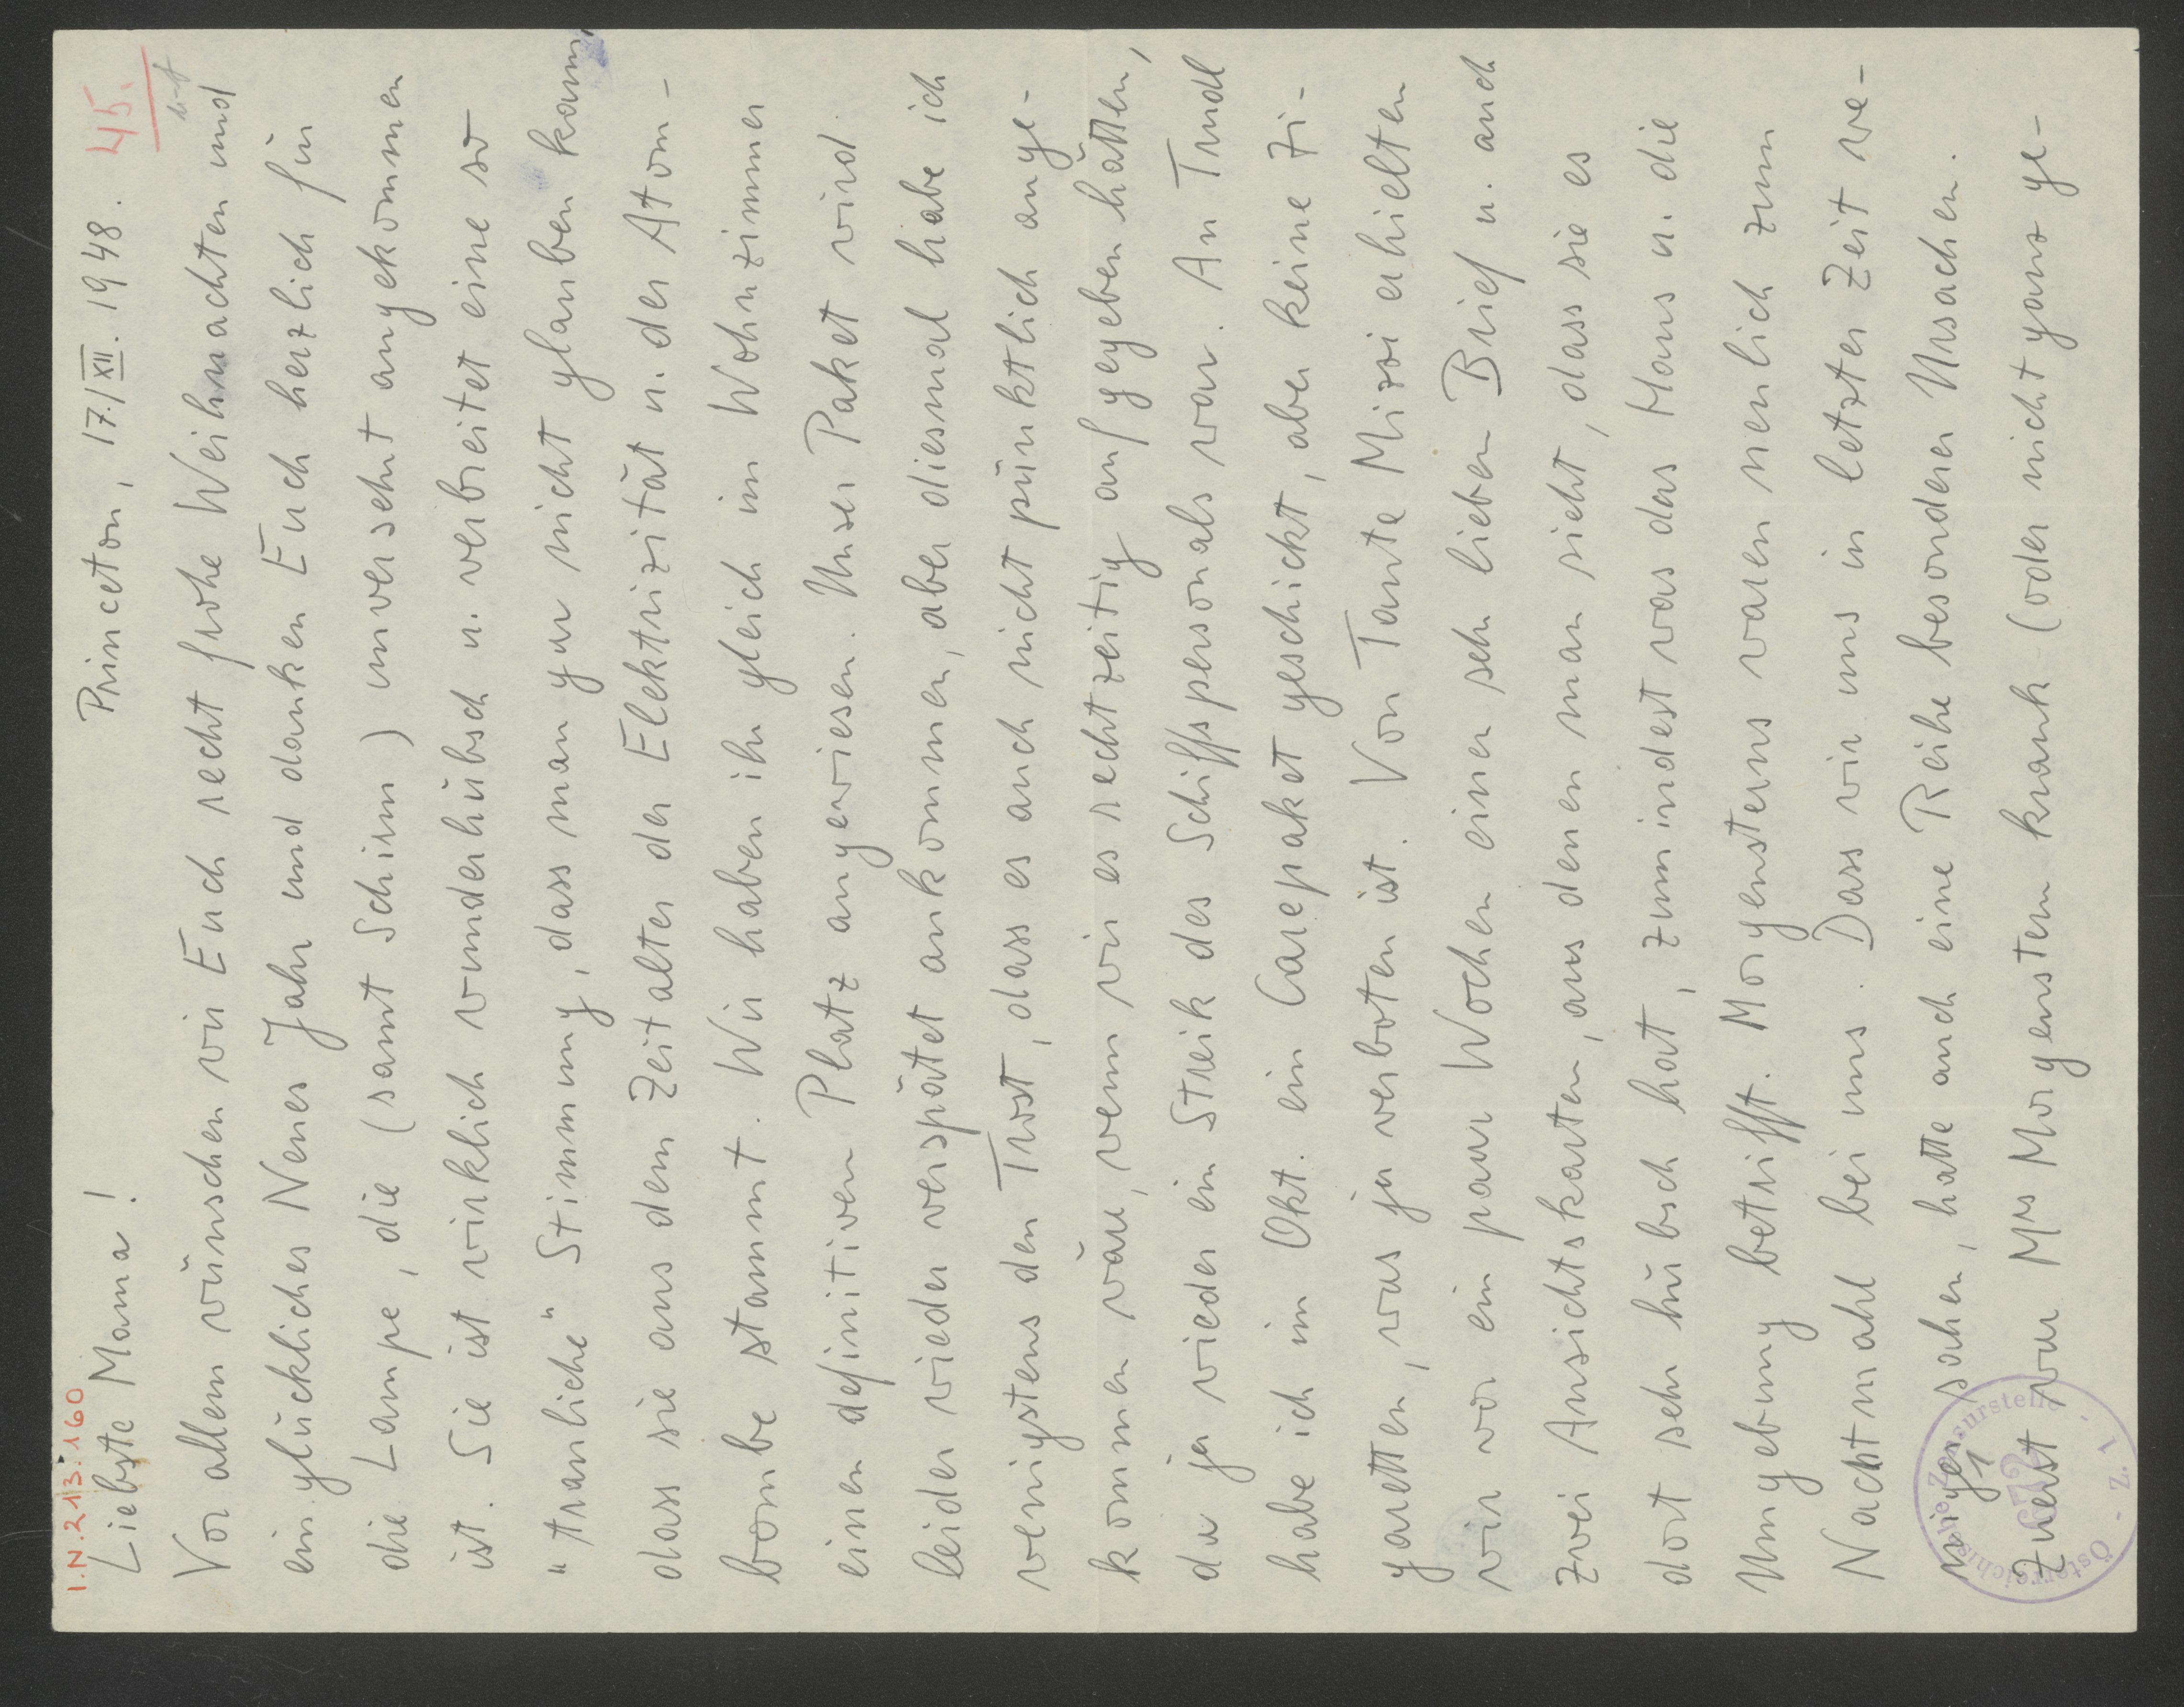 I.N. 213.160
45.
Princeton, 17./XII. 1948.
Liebste Mama!
Vor allem wünschen wir Euch recht frohe Weihnachten und
ein glückliches Neues Jahr und danken Euch herzlich für
die Lampe, die (samt Schirm) unversehrt angekommen
ist. Sie ist wirklich wunderhübsch u. verbreitet eine so
"trauliche" Stimmung, dass man gar nicht glauben kann,
dass sie aus dem Zeitalter der Elektrizität u. der Atom-
bombe stammt. Wir haben ihr gleich im Wohnzimmer
einen definitiven Platz angewiesen. Unser Paket wird
leider wieder verspätet ankommen, aber diesmal habe ich
wenigstens den Trost, dass es auch nicht pünktlich ange-
kommen wäre, wenn wir es rechtzeitig aufgegeben hätten,
da ja wieder ein Streik des Schiffspersonals war. An Trudl
habe ich im Okt. ein Carepaket geschickt, aber keine Zi-
garetten, was ja verboten ist. Von Tante Mizzi erhielten
wir vor ein paar Wochen einen sehr lieben Brief u. auch
zwei Ansichtskarten, aus denen man sieht, dass sie es
dort sehr hübsch hat, zumindest was das Haus u. die
Umgebung betrifft. Morgensterns waren neulich zum
Nachtmahl bei uns. Dass wir uns in letzter Zeit we-
niger sahen, hatte auch eine Reihe besonderer Ursachen.
Zuerst war Mrs Morgenstern krank (oder nicht ganz ge-
Österreichische Zensurstelle - Z. 1 -
672